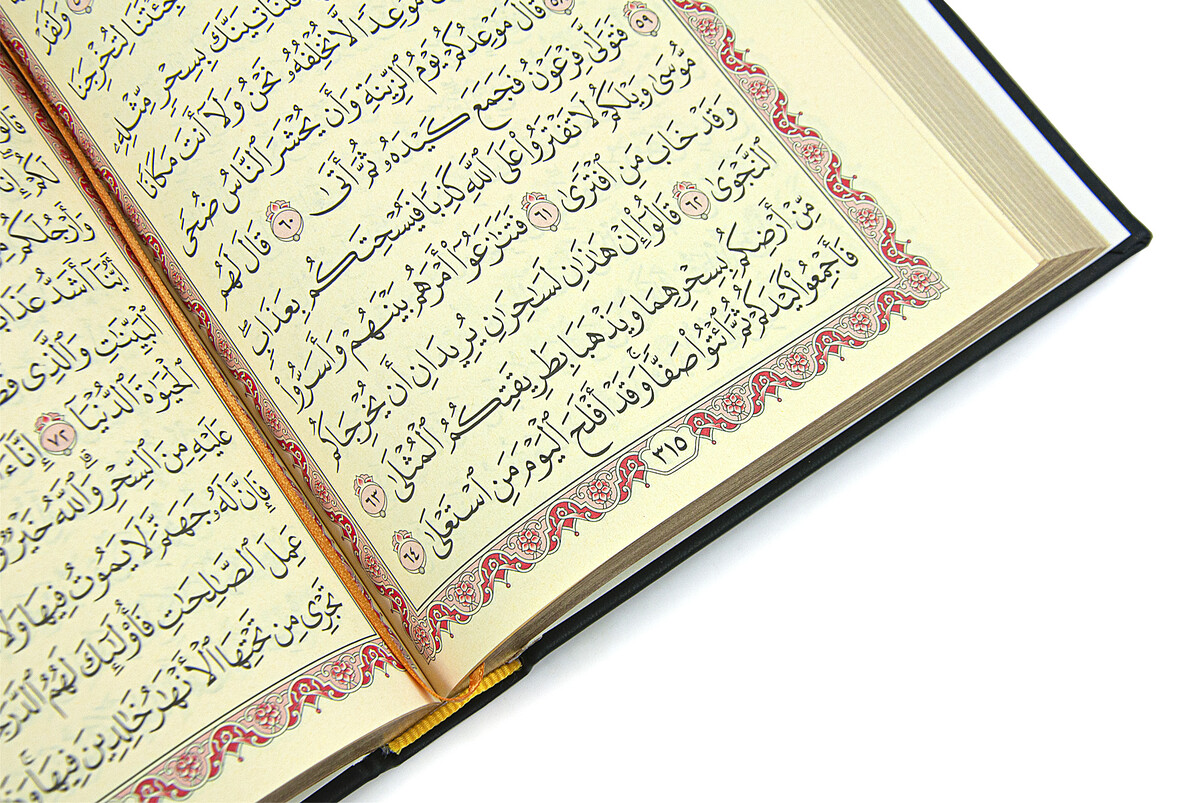 وَلَقَدْ
جِئْتَنَا لِتُخْرِجَنَا
فَلَنَأْتِيَنَّكَ بِسِحْرٍ مِّثْلِهِۦ
مَوْعِدًا لَّا نُخْلِفُهُۥ نَحْنُ وَلَآ أَنتَ مَكَانًا
٥٨ قَالَ مَوْعِدُكُمْ يَوْمُ ٱلزِّينَةِ وَأَن يُحْشَرَ ٱلنَّاسُ ضُحًى
٥٩ فَتَوَلَّىٰ فِرْعَوْنُ فَجَمَعَ كَيْدَهُۥ ثُمَّ أَتَىٰ ٦٠ قَالَ لَهُم
مُّوسَىٰ وَيْلَكُمْ لَا تَفْتَرُوا۟ عَلَى ٱللَّهِ كَذِبًا فَيُسْحِتَكُم بِعَذَابٍ ۖ
وَقَدْ خَابَ مَنِ ٱفْتَرَىٰ ٦١ فَتَنَٰزَعُوٓا۟ أَمْرَهُم بَيْنَهُمْ وَأَسَرُّوا۟
ٱلنَّجْوَىٰ ٦٢ قَالُوٓا۟ إِنْ هَٰذَٰنِ لَسَٰحِرَٰنِ يُرِيدَانِ أَن يُخْرِجَاكُم
مِّنْ أَرْضِكُم بِسِحْرِهِمَا وَيَذْهَبَا بِطَرِيقَتِكُمُ ٱلْمُثْلَىٰ ٦٣
فَأَجْمِعُوا۟ كَيْدَكُمْ ثُمَّ ٱئْتُوا۟ صَفًّا ۚ وَقَدْ أَفْلَحَ ٱلْيَوْمَ مَنِ ٱسْتَعْلَىٰ ٦٤
٣١٥
لَكُمْ ۖ إِنَّهُۥ
وَأَرْجُلَكُم
أَيُّنَآ أَشَدُّ عَذَابًا
ٱلْبَيِّنَٰتِ وَٱلَّذِى
ٱلْحَيَوٰةَ ٱلدُّنْيَآ ٧٢ إِنَّآ
عَلَيْهِ مِنَ ٱلسِّحْرِ ۗ وَٱللَّهُ خَيْرٌ
فَإِنَّ لَهُۥ جَهَنَّمَ لَا يَمُوتُ فِيهَا وَلَا
عَمِلَ ٱلصَّٰلِحَٰتِ فَأُو۟لَٰٓئِكَ لَهُمُ
تَجْرِى مِن تَحْتِهَا ٱلْأَنْهَٰرُ خَٰلِدِينَ فِيهَا ۚ